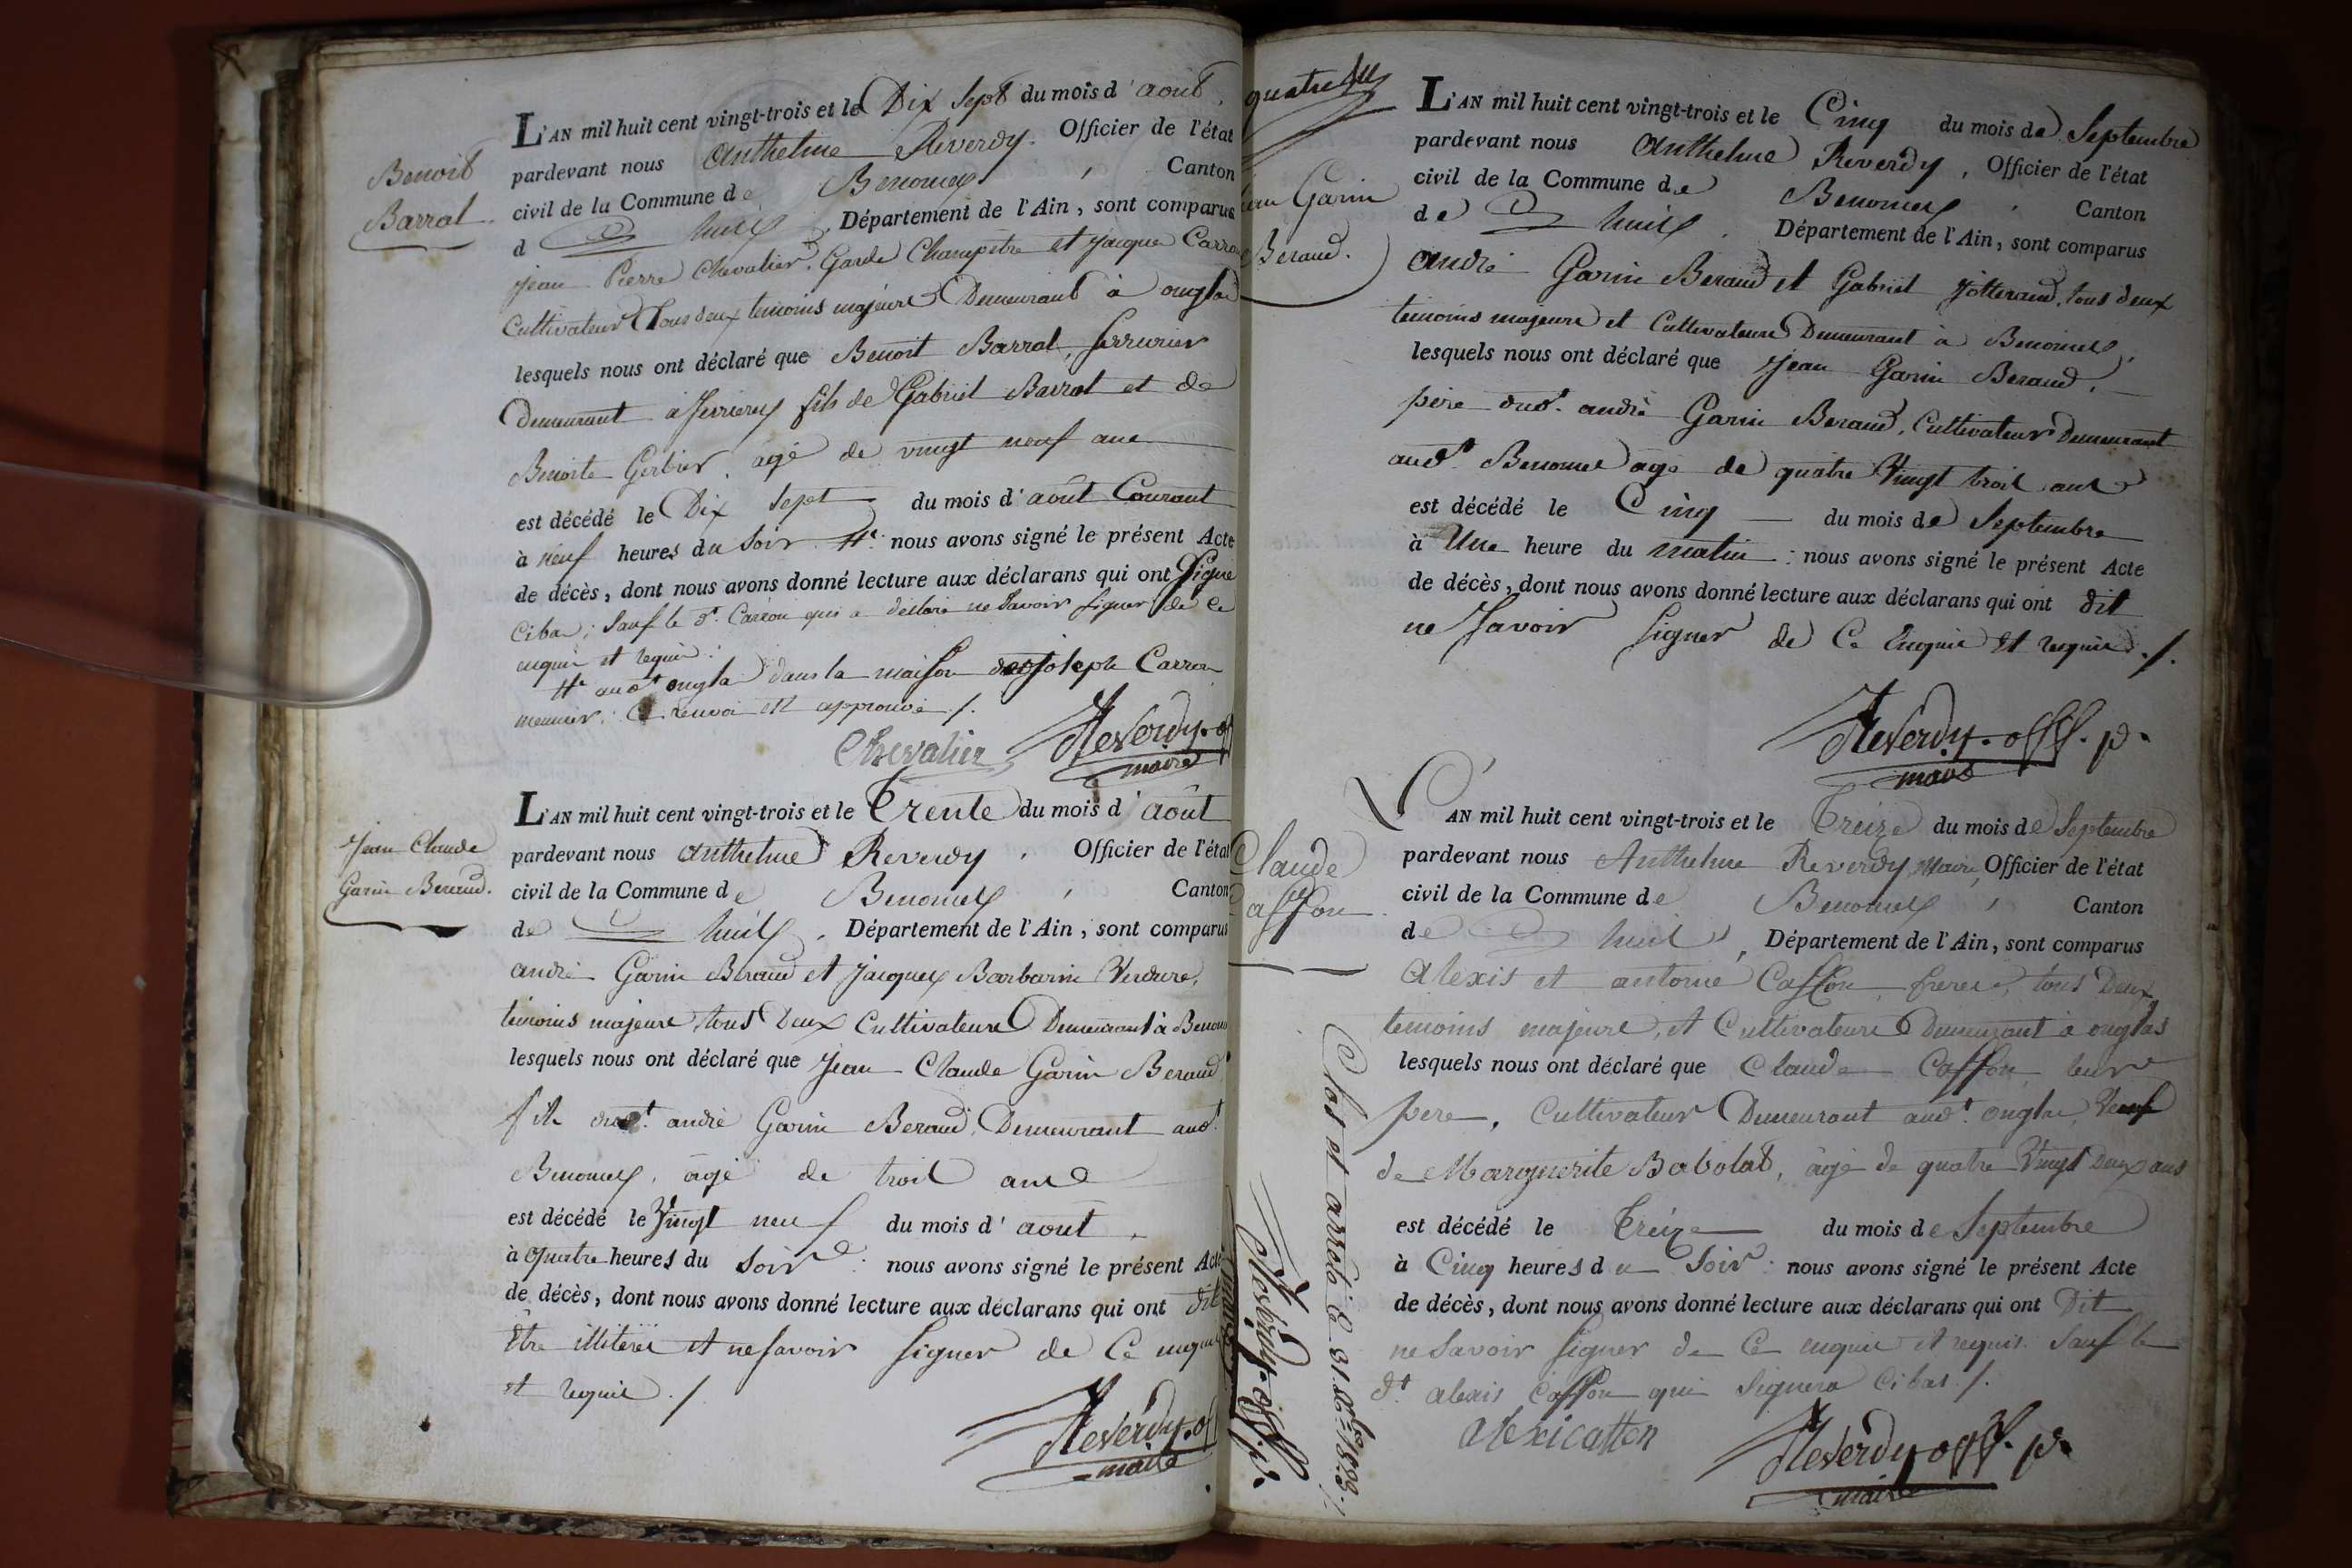 Benoit
Barral
L'AN mil huit cent vingt-trois et le Dix sept du mois d'aout,
pardevant nous Anthelme Reverdy. Officier de l'état
civil de la Commune de Benonces, Canton
d Lhuis, Département de l'Ain, sont comparus
jean Pierre Chevalier, Garde Champêtre et jacque Carron
Cultivateur Tous deux temoins majeurs Demeurant à onglas
lesquels nous ont déclaré que Benoit Barral, serrurier
Demeurant à fils de Gabriel Barral et de
Benoite Gerbier, âgé de vingt neuf ans
est décédé le Dix sept du mois d'août Courant
à neuf heures du soir #e. nous avons signé le présent Acte
de décès, dont nous avons donné lecture aux déclarans qui ont signé
cibas; sauf le d. Carron qui a déclaré ne savoir signer de ce
enquis et requis.
#e aud.t onglas dans la maison de joseph Carron
meunier. Ce renvoi est approuvé ./.
Chevalier Reverdy. off
maire
Jean Claude
Garin Beraud.
L'AN mil huit cent vingt-trois et le Trente du mois d'août
pardevant nous Anthelme Reverdy, Officier de l'état
civil de la Commune de Benonces, Canton
de Lhuis, Département de l'Ain, sont comparus
andré Garin Beraud et jacques Barbarin Verdure,
témoins majeurs tous deux Cultivateurs Demeurant à Benon
lesquels nous ont déclaré que Jean Claude Garin Beraud
fils dud.t andré Garin Beraud, Demeurant aud.
Benonces, âgé de trois ans
est décédé le Vingt neuf du mois d'aout,
à quatre heures du soir: nous avons signé le présent Acte
de décès, dont nous avons donné lecture aux déclarans qui ont dit
être illiterés et ne savoir signer de Ce enquis
et requis ./.
Reverdy. off
maire
quatre
Jean Garin
Beraud.
L'AN mil huit cent vingt-trois et le Cinq du mois de Septembre
pardevant nous Anthelme Reverdy, Officier de l'état
civil de la Commune de Benonces, Canton
de Lhuis, Département de l'Ain, sont comparus
andré Garin Beraud et Gabriel Jotteraud, tous deux
temoins majeurs et Cultivateurs Demeurant à Benonces,
lesquels nous ont déclaré que Jean Garin Beraud,
père dud. andré Garin Beraud, Cultivateur Demeurant
aud.t Benonces âgé de quatre Vingt trois ans
est décédé le Cinq du mois de Septembre
à Une heure du matin: nous avons signé le présent Acte
de décès, dont nous avons donné lecture aux déclarans qui ont dit
ne savoir signer de Ce Enquis et requis ./.
Reverdy. off. p.
maire
Claude
Casson
L'AN mil huit cent vingt-trois et le Treize du mois de Septembre
pardevant nous Anthelme Reverdy, Maire, Officier de l'état
civil de la Commune de Benonces, Canton
de Lhuis, Département de l'Ain, sont comparus
Alexis et antoine Casson, freres, tous Deux
temoins majeurs, et Cultivateurs Demeurant à onglas
lesquels nous ont déclaré que Claude Casson leur
pere, Cultivateur Demeurant aud.t onglas, Veuf
de Marguerite Babolat, âgé de quatre Vingt Deux ans
est décédé le Treize du mois de Septembre
à Cinq heures du soir: nous avons signé le présent Acte
de décès, dont nous avons donné lecture aux déclarans qui ont Dit
ne savoir signer de Ce enquis et requis. Sauf le
d.t alexis Casson qui signera cibas ./.
Alexicatton
Reverdy off. p.
maire
Clos et arreté le 31 Xbre 1823 ./.
Reverdy. off. p.
maire